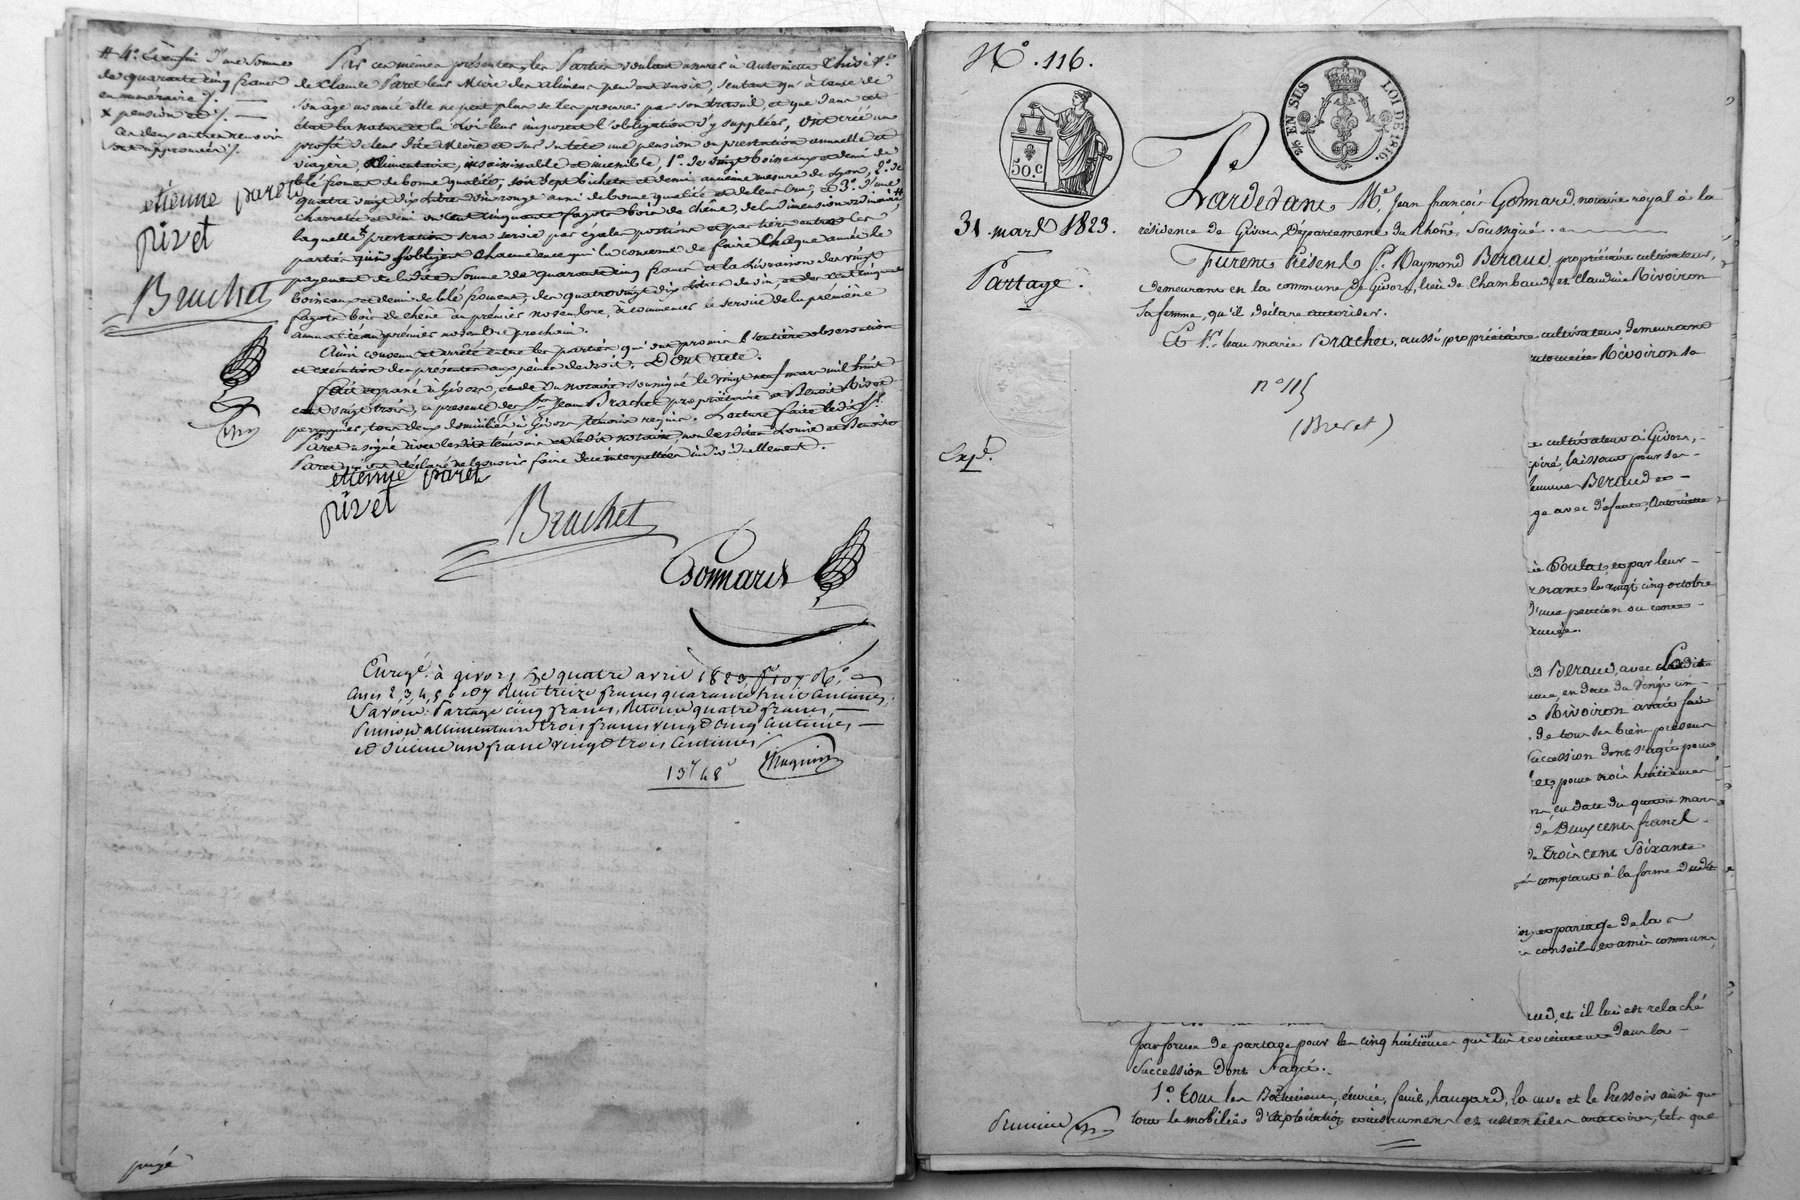 # 4° Enfin d'une somme
de quarante cinq francs
en numéraire
x pension et
Ces deux autres renvois
sont approuvés
etienne paret
pivet
Brachet
Par ces mêmes présentes, les Parties voulant assurer à Antoinette
de Claude Paret leur Mère des alimens pendant sa vie, sentant qu'à cause de
son âge avancé elle ne peut plus se les procurer par son travail, et que dans cet
état la nature et la Loi leur imposent l'obligation d'y suppléer, ont créé au
profit de leur dite Mère et sur sa tête une pension ou prestation annuelle et
viagère, alimentaire, insaisissable et incessible, 1° de vingt boisseaux et demi de
blé froment de bonne qualité, soit sept bichets et demi ancienne mesure de Lyon, 2° de
quatre vingt dix litres vin rouge aussi de bonne qualité et de leur cru, et 3° d'une
charretée et demi ou cent cinquante fagots bois de chêne, de la dimension ordinaire #
laquelle x prestation sera servie par égales portions et par tiers entre les
parties qui s'obligent chacun en ce qui le concerne de faire chaque année le
payement de ladite somme de quarante cinq francs et la livraison des vingt
boisseaux et demi de blé froment, des quatre vingt dix litres de vin, et des cent cinquante
fagots bois de chêne au premier novembre, à commencer le service de la première
année au premier novembre prochain.
Ainsi convenu et arrêté entre les parties qui ont promis l'entière observation
et exécution des présentes aux peines de droit. Dont acte.
Fait et passé à Givors, étude du notaire soussigné le vingt neuf mars mil huit
cent vingt trois, en présence des Srs Jean Brachet propriétaire et Benoit Rivet
perruquier, tous deux domiciliés à Givors témoins requis. Lecture faite ledit Sr
Paret a signé avec les dits témoins et ledit notaire, non lesdites Louise et Benoite
Paret qui ont déclaré ne le savoir faire de ce interpellées individuellement.
etienne paret
pivet
Brachet
Gonnard
Enregé à givors le quatre avril 1823 fo 107 Ro
Cases 2, 3, 4, 5, 6 et 7 Reçu treize francs quarante huit centimes,
Savoir: Partage cinq francs, Retour quatre francs,
Pension alimentaire trois francs vingt cinq centimes
et Décime un franc vingt trois centimes
13f 48c
N° 116.
50.C
25 EN SUS
LOI DE 1816.
31. mars 1823.
Partage.
Expé.
Pardevant Me Jean françois Gonnard, notaire royal à la
résidence de Givors, Département du Rhône, soussigné.
Furent Présents Sr Raymond Beraud, propriétaire cultivateur,
demeurant en la commune de Givors, lieu de Chambaud, et Claudine Rivoiron
sa femme, qu'il déclare autoriser.
Et Sr Jean marie Brachet, aussi propriétaire cultivateur demeurant
Antoinette Rivoiron sa
n° 115
(Brevet)
e cultivateur à Givors,
laissant pour sa
femme Beraud et
ge avec défunte, Antoinette
Poulat, et par leur
le vingt cinq octobre
d'une pension ou rente
d Beraud, avec Ladite
en date du vingt un
Rivoiron avait fait
de tous ses biens présens
succession dont s'agit pour
et, pour trois huitièmes
en date du quatre mars
de Deux cents francs
de trois cent soixante
comptant à la forme dudit
et partage de la
conseils et amis communs
ud, et il lui est relaché
par forme de partage pour les cinq huitièmes qui lui reviennent dans la
succession dont s'agit.
1° tous les Bâtimens, écurie, fenil, hangard, la cuve et le Pressoir ainsi que
tous le mobilier d'exploitation instrumens et ustensiles aratoires, tels que